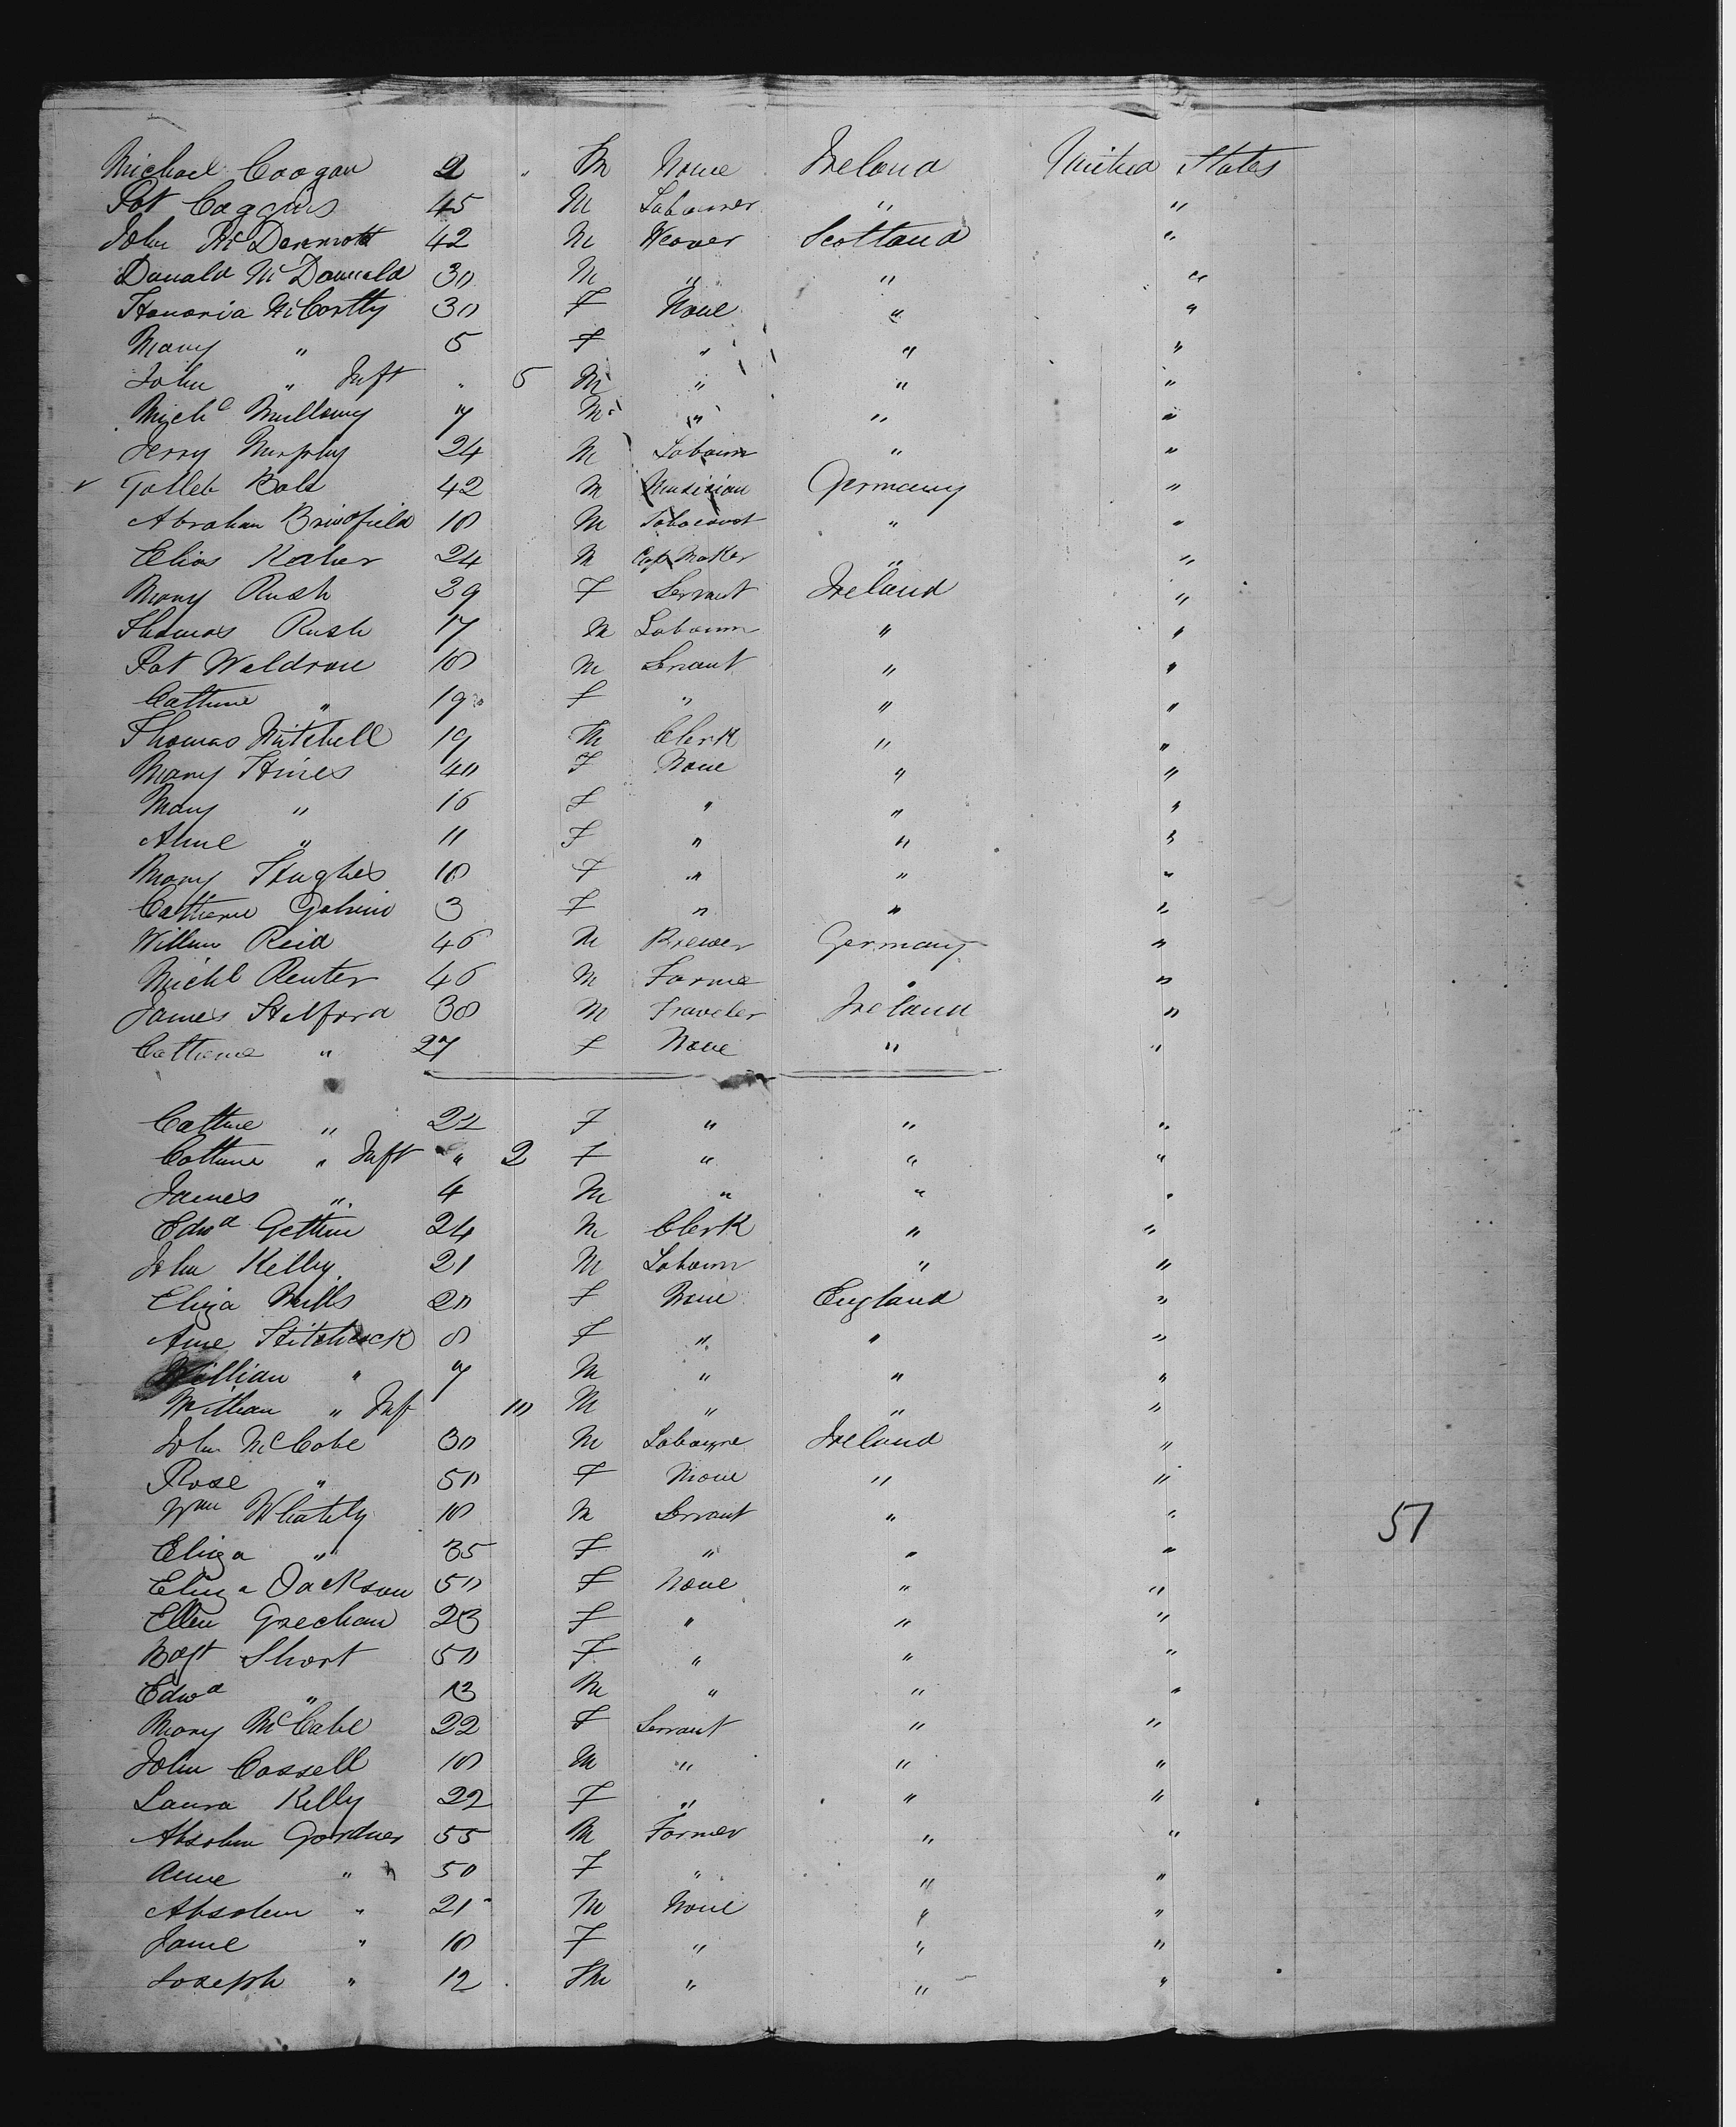 Michael Coogan 2 " M None Ireland United States
Pat Coggins 45 M Labourer " "
John McDermott 42 M Weaver Scotland "
Donald McDonnald 30 M " " "
Honoria McCortty 30 F None " "
Mary " 5 F " " "
John " Inft " 5 M " " "
Michl Mullowy 7 M " " "
Jerry Murphy 24 M Labourr " "
Gotleb Bolt 42 M Musician Germany "
Abraham 18 M Tobaconst " "
Elias Kaher 24 M Cap Maker " "
Mary Rush 29 F Servant Ireland "
Thomas Rush 17 M Labourr " "
Pat Waldron 18 M Servant " "
Cathrine " 19 F " " "
Thomas Mitchell 19 M Clerk " "
Mary Hines 40 F None " "
Mary " 16 F " " "
Anne " 11 F " " "
Mary Hughes 18 F " " "
Catherine Galvin 3 F " " "
William Reid 46 M Brewer Germany "
Michl Reuter 46 M Farmer " "
James Stelford 38 M Traveler Ireland "
Catherine " 27 F None " "
Cathrine " 22 F " " "
Cathrine " Inft " 2 F " " "
James " 4 M " " "
Edwd Gethin 24 M Clerk " "
John Kelly 21 M Labourr " "
Eliza Mills 20 F None England "
Anne Hitchcock 8 F " " "
William " 7 M " " "
William " Inf 10 M " " "
John McCabe 30 M Labourer Ireland "
Rose " 50 F None " "
Wm Whately 18 M Servant " "
Eliza " 35 F " " "
Eliza Jackson 50 F None " "
Ellen Greehan 23 F " " "
Magt Short 50 F " " "
Edwd " 13 M " " "
Mary McCabe 22 F Servant " "
John Cassell 18 M " " "
Laura Kelly 22 F " " "
Absolm Gardner 55 M Farmer " "
Anne " 50 F " " "
Absolem " 21 M None " "
Jane " 18 F " " "
Joseph " 12 M " " "
51